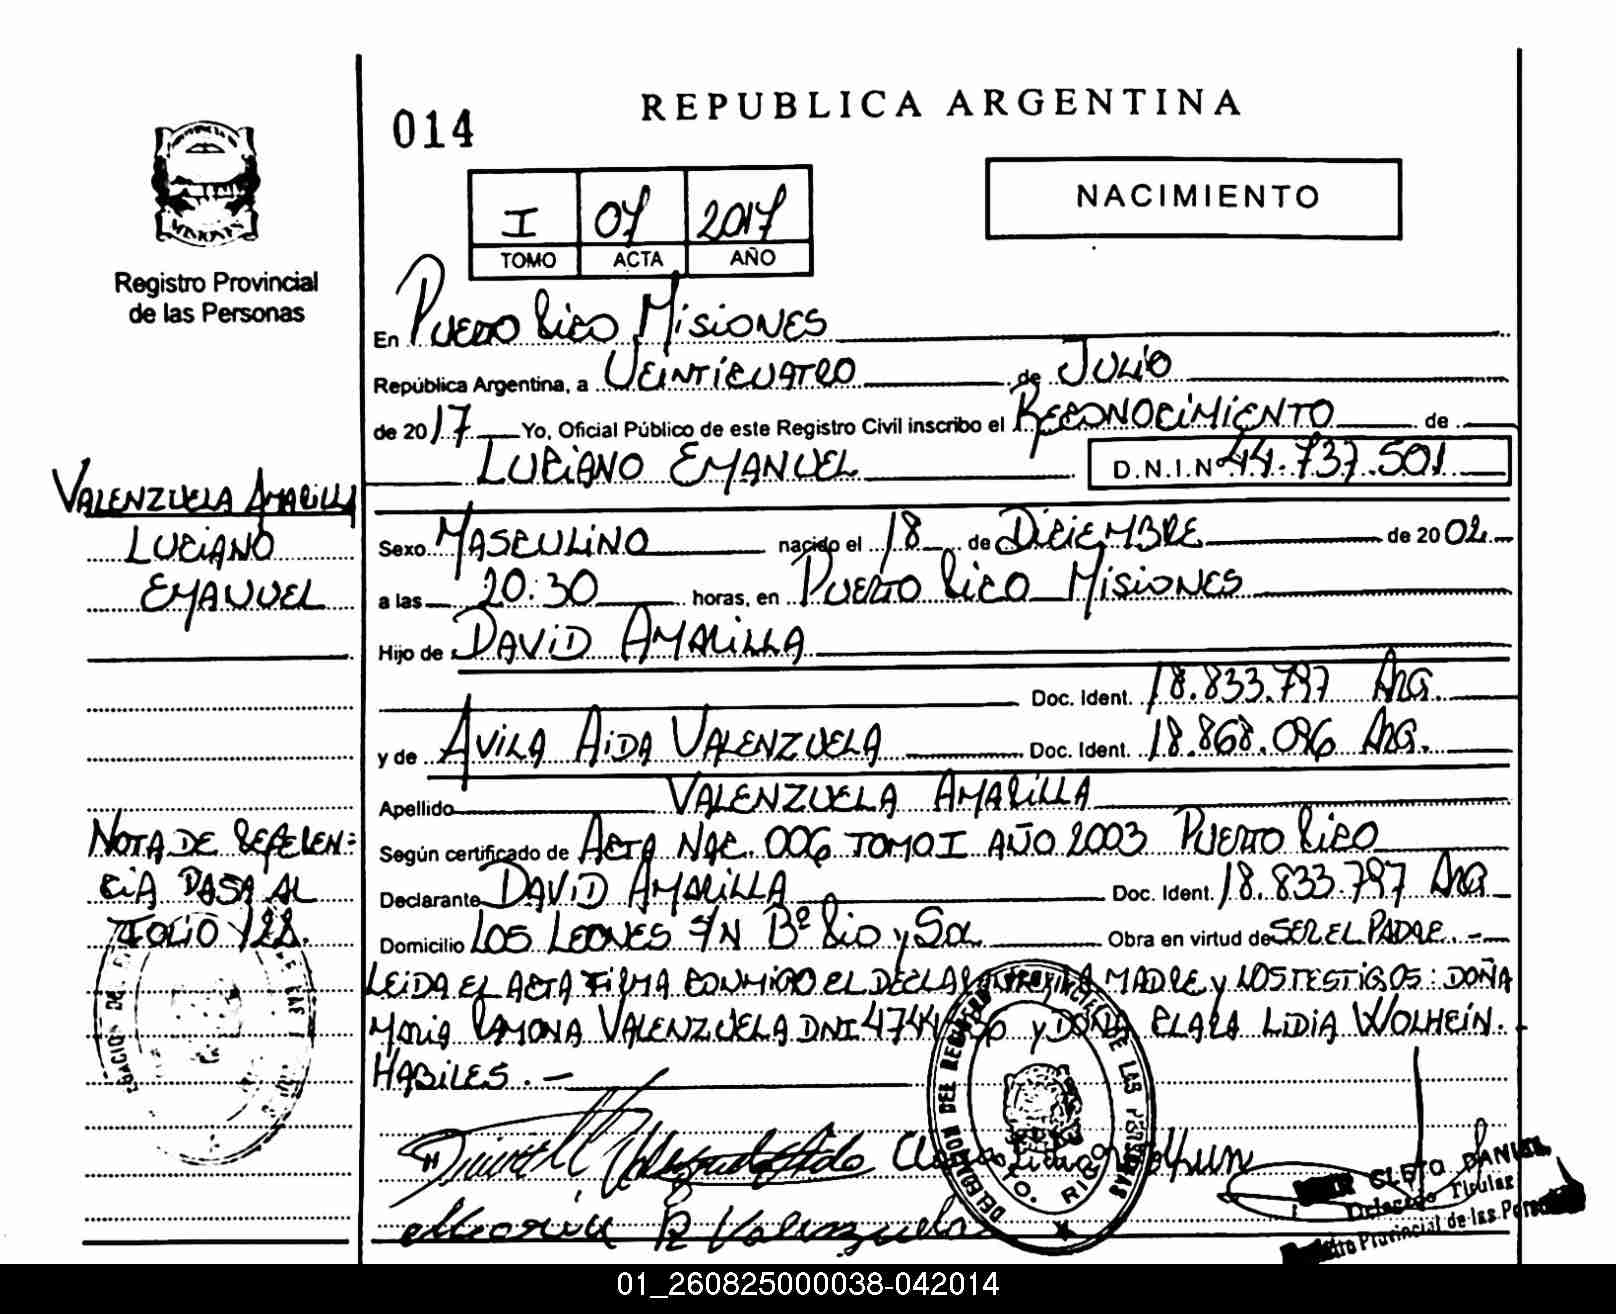 REPUBLICA ARGENTINA
014
NACIMIENTO
I 07 2017
TOMO ACTA AÑO
MISIONES
Registro Provincial
de las Personas
En PUERTO RICO MISIONES
República Argentina, a VEINTICUATRO de JULIO
de 2017 Yo, Oficial Público de este Registro Civil inscribo el RECONOCIMIENTO de
LUCIANO EMANUEL D.N.I.Nº 44.737.501
VALENZUELA AMARILLA
LUCIANO
EMANUEL
Sexo MASCULINO nacido el 18 de DICIEMBRE de 2002
a las 20:30 horas, en PUERTO RICO MISIONES
Hijo de DAVID AMARILLA
Doc. Ident. 18.833.797 ARG.
y de AVILA AIDA VALENZUELA Doc. Ident. 18.868.096 ARG.
Apellido VALENZUELA AMARILLA
Según certificado de ACTA NAC. 006 TOMO I AÑO 2003 PUERTO RICO
Declarante DAVID AMARILLA Doc. Ident. 18.833.797 ARG
Domicilio LOS LEONES S/N Bº RIO y SOL Obra en virtud de SER EL PADRE.-
NOTA DE REFEREN=
CIA PASA AL
FOLIO 122.
LEIDA EL ACTA FIRMA CONMIGO EL LA MADRE y LOS TESTIGOS: DOÑA
MARIA RAMONA VALENZUELA DNI y DOÑA CLARA LIDIA WOLHEIN.
HABILES.-
DELEGACION DEL REGISTRO PROVINCIAL DE LAS PERSONAS
PTO. RICO
Valenzuela
CLETO DANIEL
Delegado Titular
Registro Provincial de las Personas
01_260825000038-042014